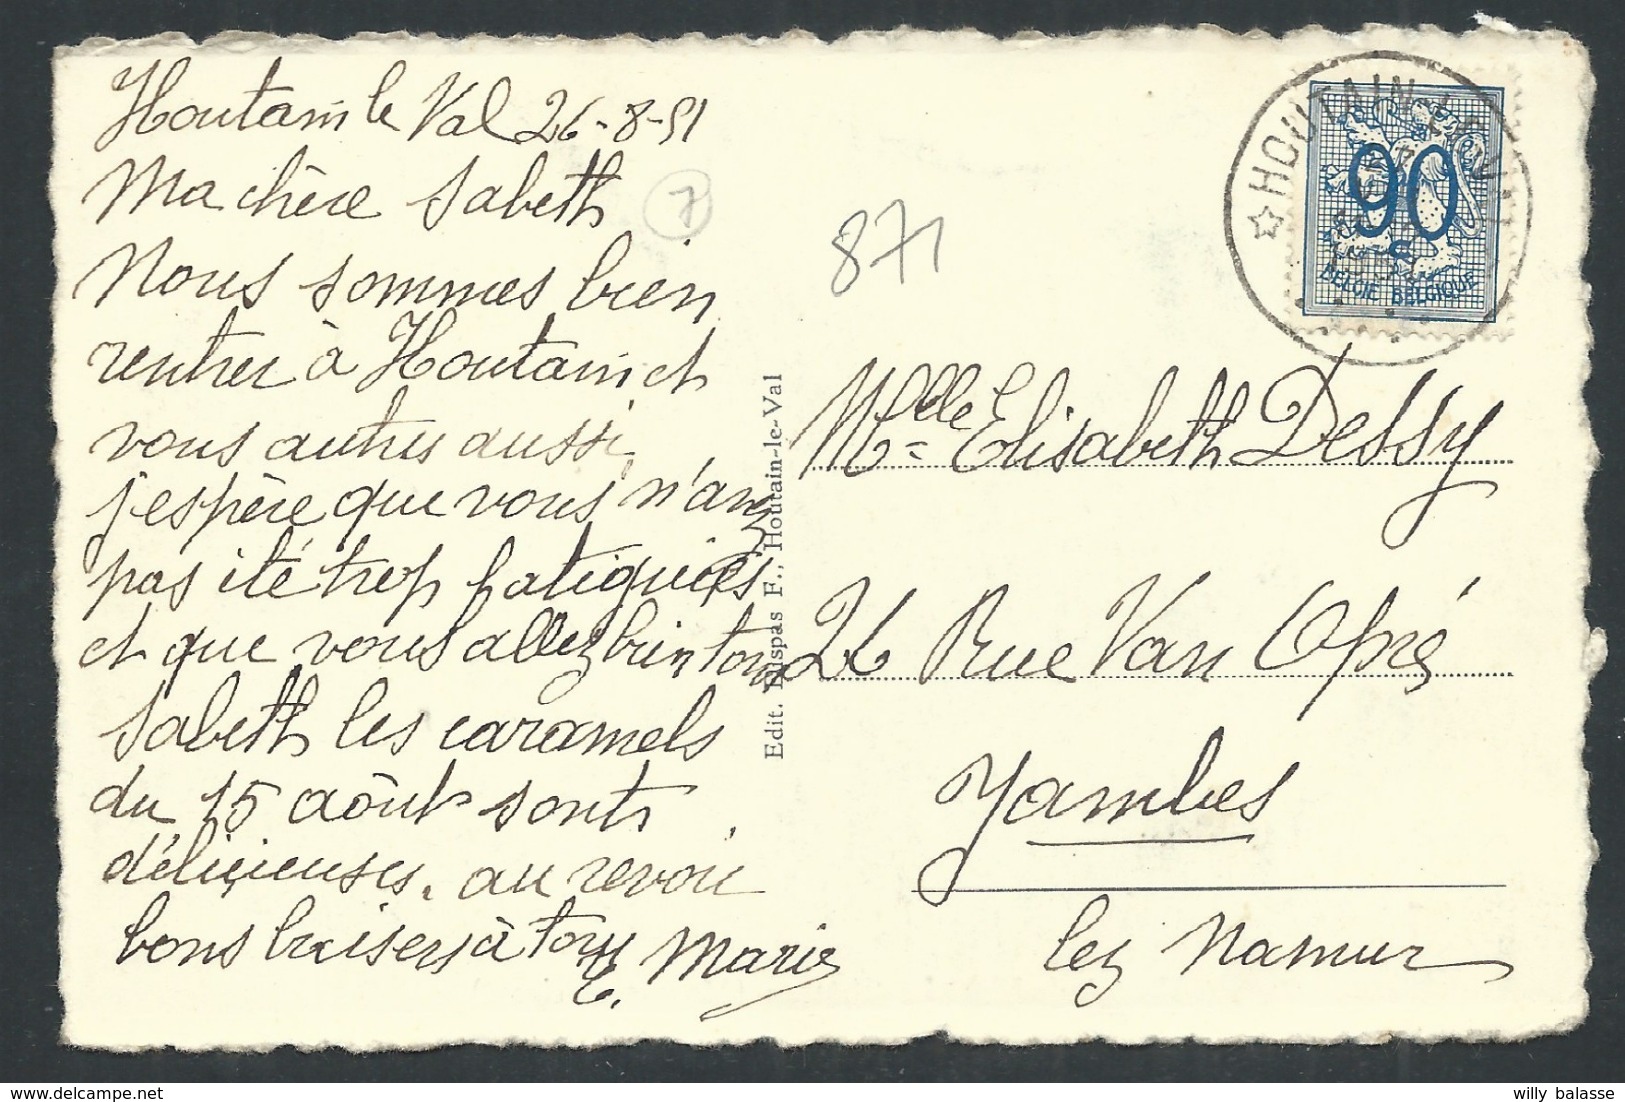 Houtain le Val 26-8-51
Ma chère Sabeth
7
Nous sommes bien
rentrer à Houtain et
vous autres aussi
j'espère que vous n'avez
pas été trop fatiguées
et que vous allez bien tous
Sabeth les caramels
du 15 août sonts
déliçieuses. au revoir
bons baisers à tous Marie
871
Edit. Duspas F., Houtain-le-Val
☆ HOUTAIN-LE-VAL
90 c
BELGIE BELGIQUE
Melle Elisabeth Dessy
26 Rue Van Opré
Jambes
lez Namur
willy balasse